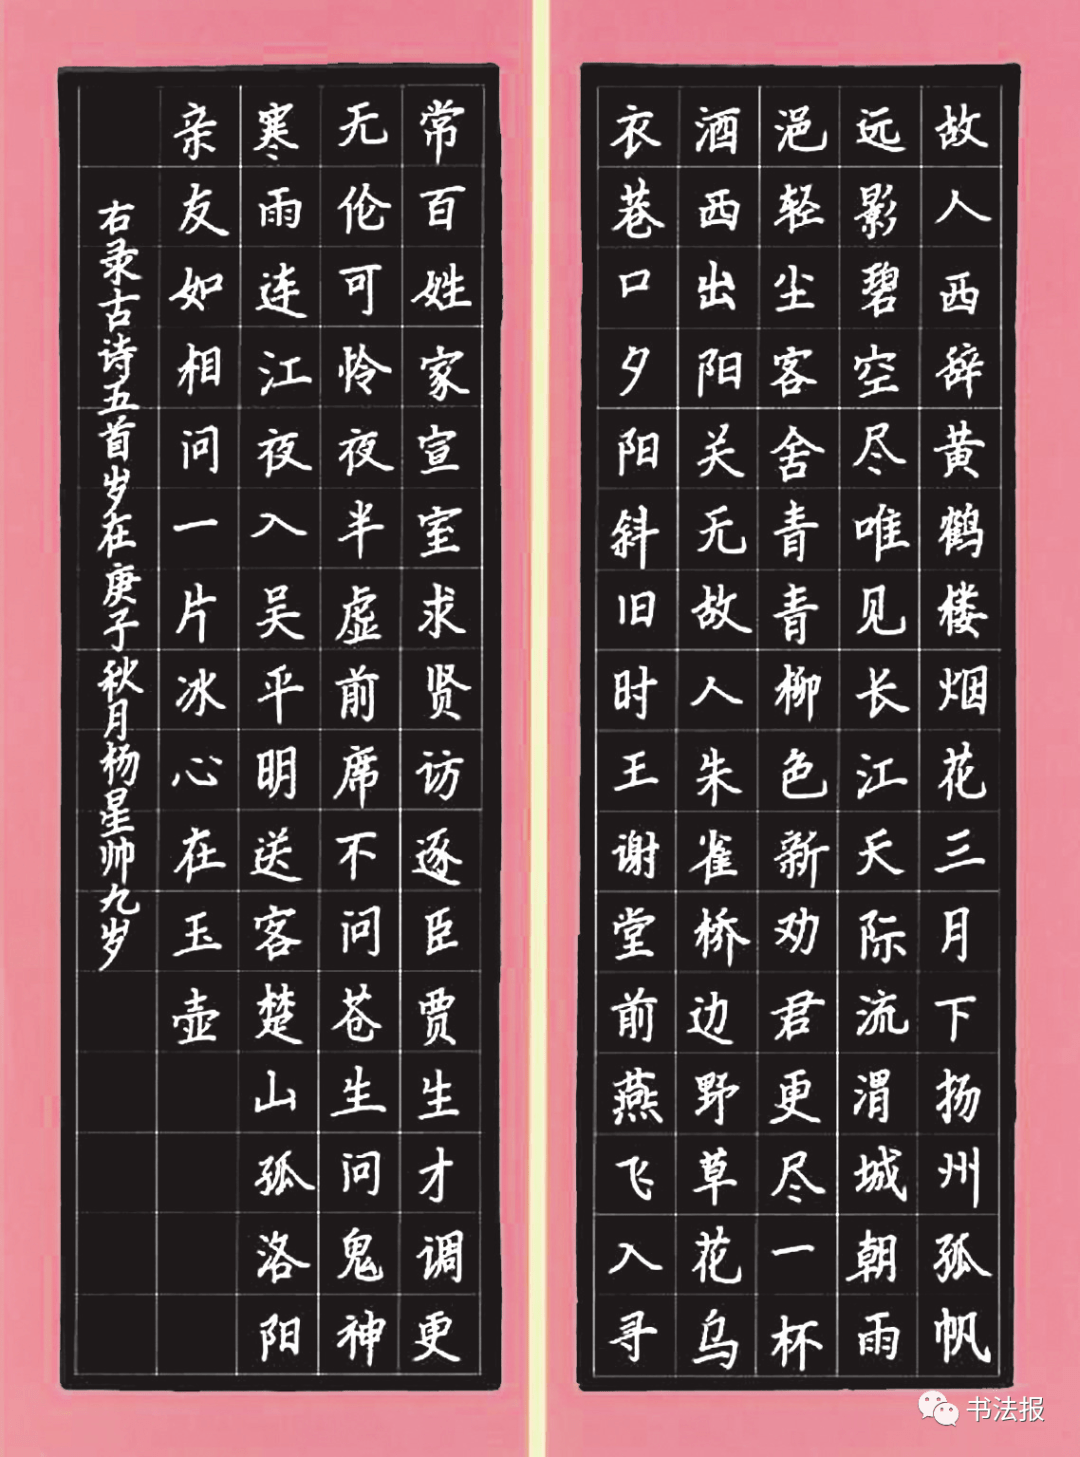 故人西辞黄鹤楼烟花三月下扬州孤帆
远影碧空尽唯见长江天际流渭城朝雨
浥轻尘客舍青青柳色新劝君更尽一杯
酒西出阳关无故人朱雀桥边野草花乌
衣巷口夕阳斜旧时王谢堂前燕飞入寻
常百姓家宣室求贤访逐臣贾生才调更
无伦可怜夜半虚前席不问苍生问鬼神
寒雨连江夜入吴平明送客楚山孤洛阳
亲友如相问一片冰心在玉壶
右录古诗五首岁在庚子秋月杨星帅九岁
书法报